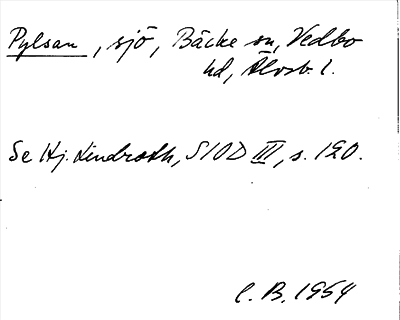 Pylsan, sjö, Bäcke sn, Vedbo
hd, Älvsb. l.
Se Hj. Lindroth, SIOD III, s. 120.
C. B. 1954